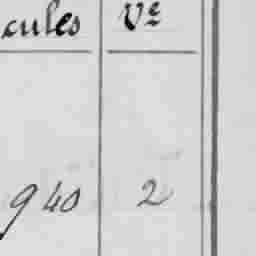 cules Vᵉ
940 2